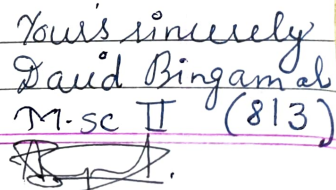 Your's sincerely
David Bingamal
M.sc II (813)